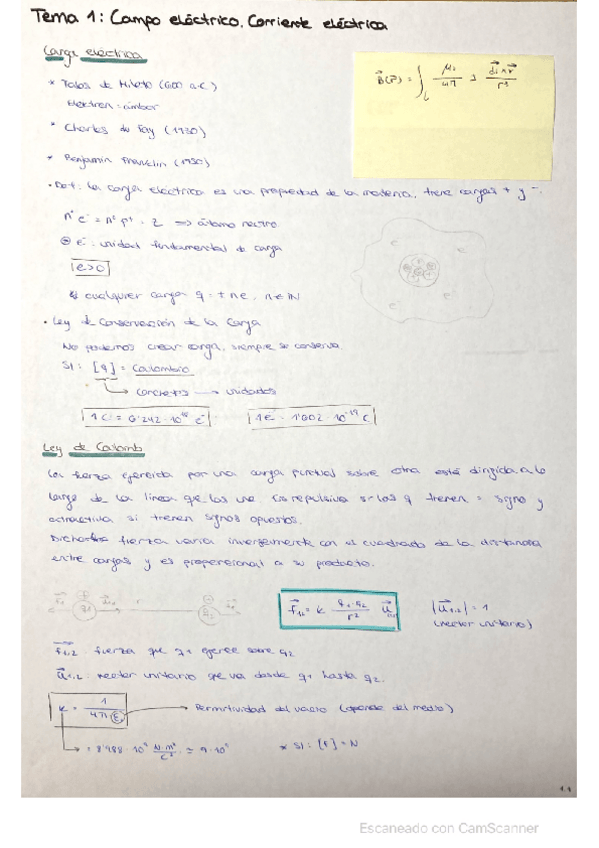 Tema 1: Campo eléctrico. Corriente eléctrica
Carga eléctrica
B(r) = ∫L μ0/4π I dl×r/r³
* Tales de Mileto (600 a.C)
Elektron: ámbar
* Charles du Fay (1730)
* Benjamin Franklin (1750)
· Def: La carga eléctrica es una propiedad de la materia, tiene cargas + y -.
nº e⁻ = nº p⁺ = Z ⇒ átomo neutro
e⁻: unidad fundamental de carga
|e>0|
cualquier carga q = ± n e, n ∈ ℕ
· Ley de Conservación de la Carga
No podemos crear carga, siempre se conserva
SI: [q] = Coulombio
corchetes → unidades
1 C = 6'242·10¹⁸ e⁻
1 e⁻ = 1'602·10⁻¹⁹ C
Ley de Coulomb
La fuerza ejercida por una carga puntual sobre otra está dirigida a lo
largo de la línea que las une. Es repulsiva si las q tienen = signo y
atractiva si tienen signos opuestos.
Dicha fuerza varía inversamente con el cuadrado de la distancia
entre cargas y es proporcional a su producto.
F₁₂ = k q₁·q₂/r² u₁₂
|u₁₂| = 1
(vector unitario)
F₁₂: fuerza que q₁ ejerce sobre q₂
u₁₂: vector unitario que va desde q₁ hasta q₂.
k = 1/4πε → Permitividad del vacío (depende del medio)
= 8'988·10⁹ N·m²/C² ≃ 9·10⁹
* SI: [F] = N
1.1
Escaneado con CamScanner